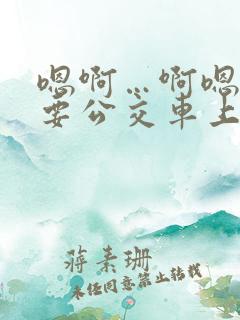 嗯啊…啊嗯
要公交车上
蒋素珊
未经同意禁止转载